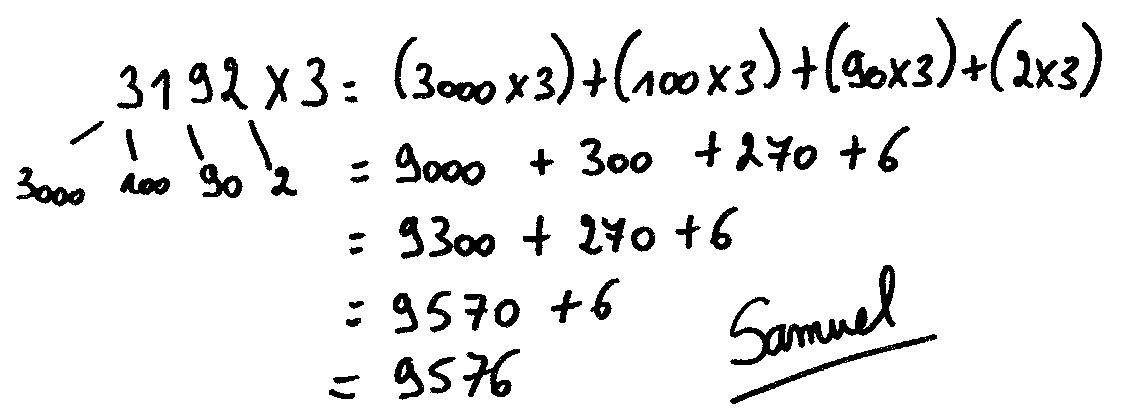 3192 x 3 = (3000 x 3) + (100 x 3) + (90 x 3) + (2 x 3)
3000 100 90 2 = 9000 + 300 + 270 + 6
= 9300 + 270 + 6
= 9570 + 6
Samuel
= 9576